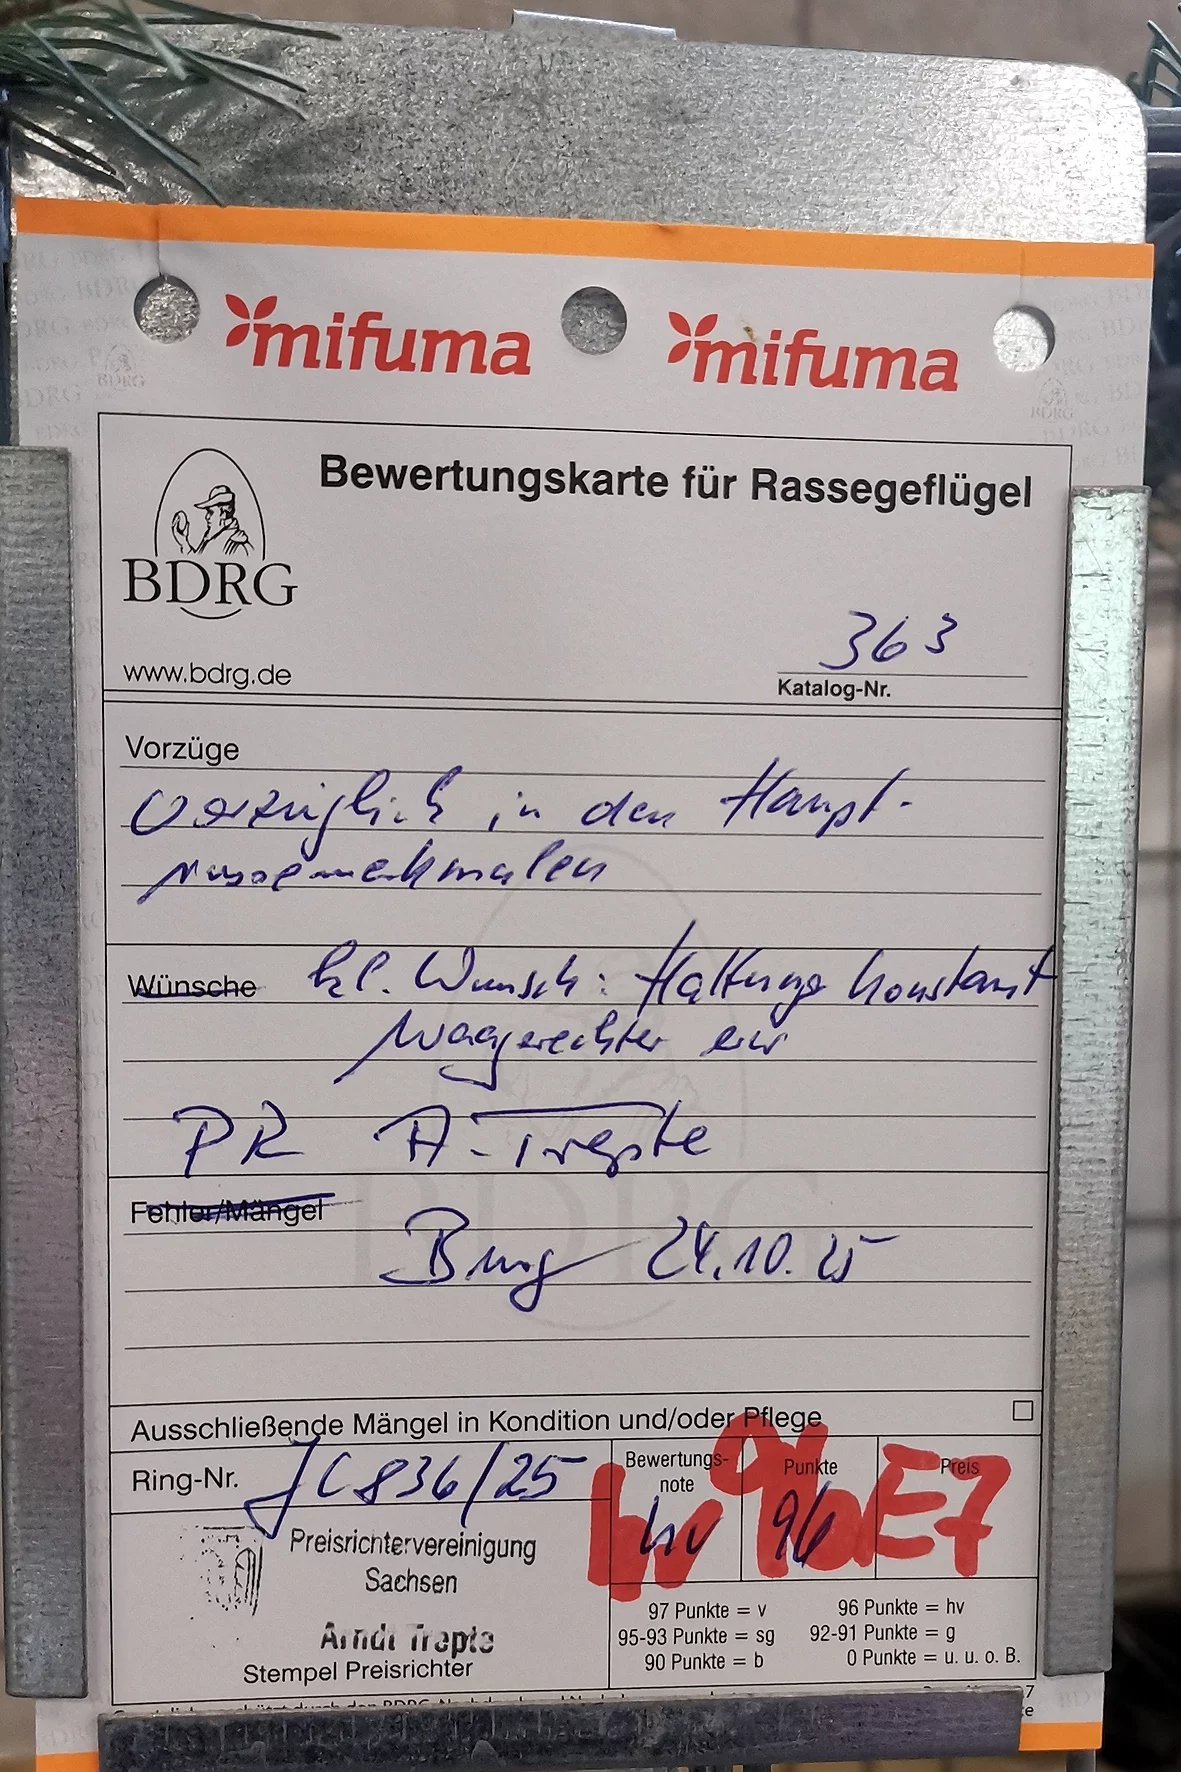 mifuma mifuma
Bewertungskarte für Rassegeflügel
BDRG
www.bdrg.de
363
Katalog-Nr.
Vorzüge
Vorzüglich in den Haupt-
rassemerkmalen
Wünsche kl. Wunsch: Haltung konstant
waagerechter
PR A. Trepte
Fehler/Mängel
24.10.25
Ausschließende Mängel in Kondition und/oder Pflege
Ring-Nr. JC836/25
Bewertungs-
note
hv
Punkte
96
Preis
E7
Preisrichtervereinigung
Sachsen
Arndt Trepte
Stempel Preisrichter
97 Punkte = v 96 Punkte = hv
95-93 Punkte = sg 92-91 Punkte = g
90 Punkte = b 0 Punkte = u. u. o. B.